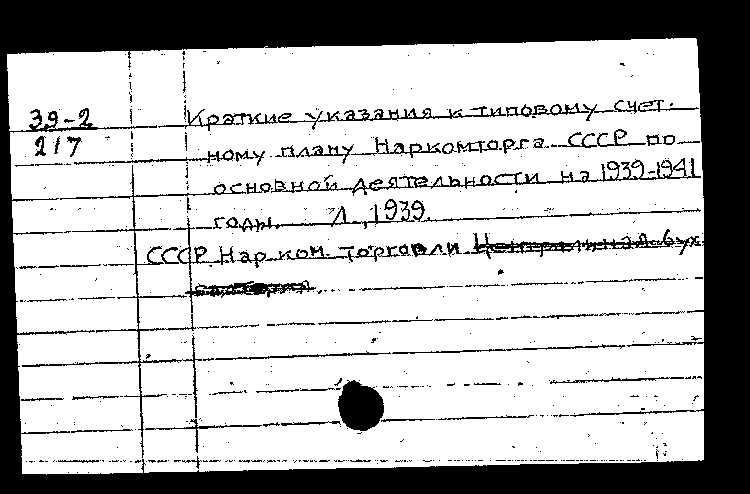 39-2 Краткие указания к типовому счет-
217 ному плану Наркомторга СССР по
основной деятельности на 1939-1941
годы. Л., 1939.
СССР Нар. ком. торговли Центральная бух